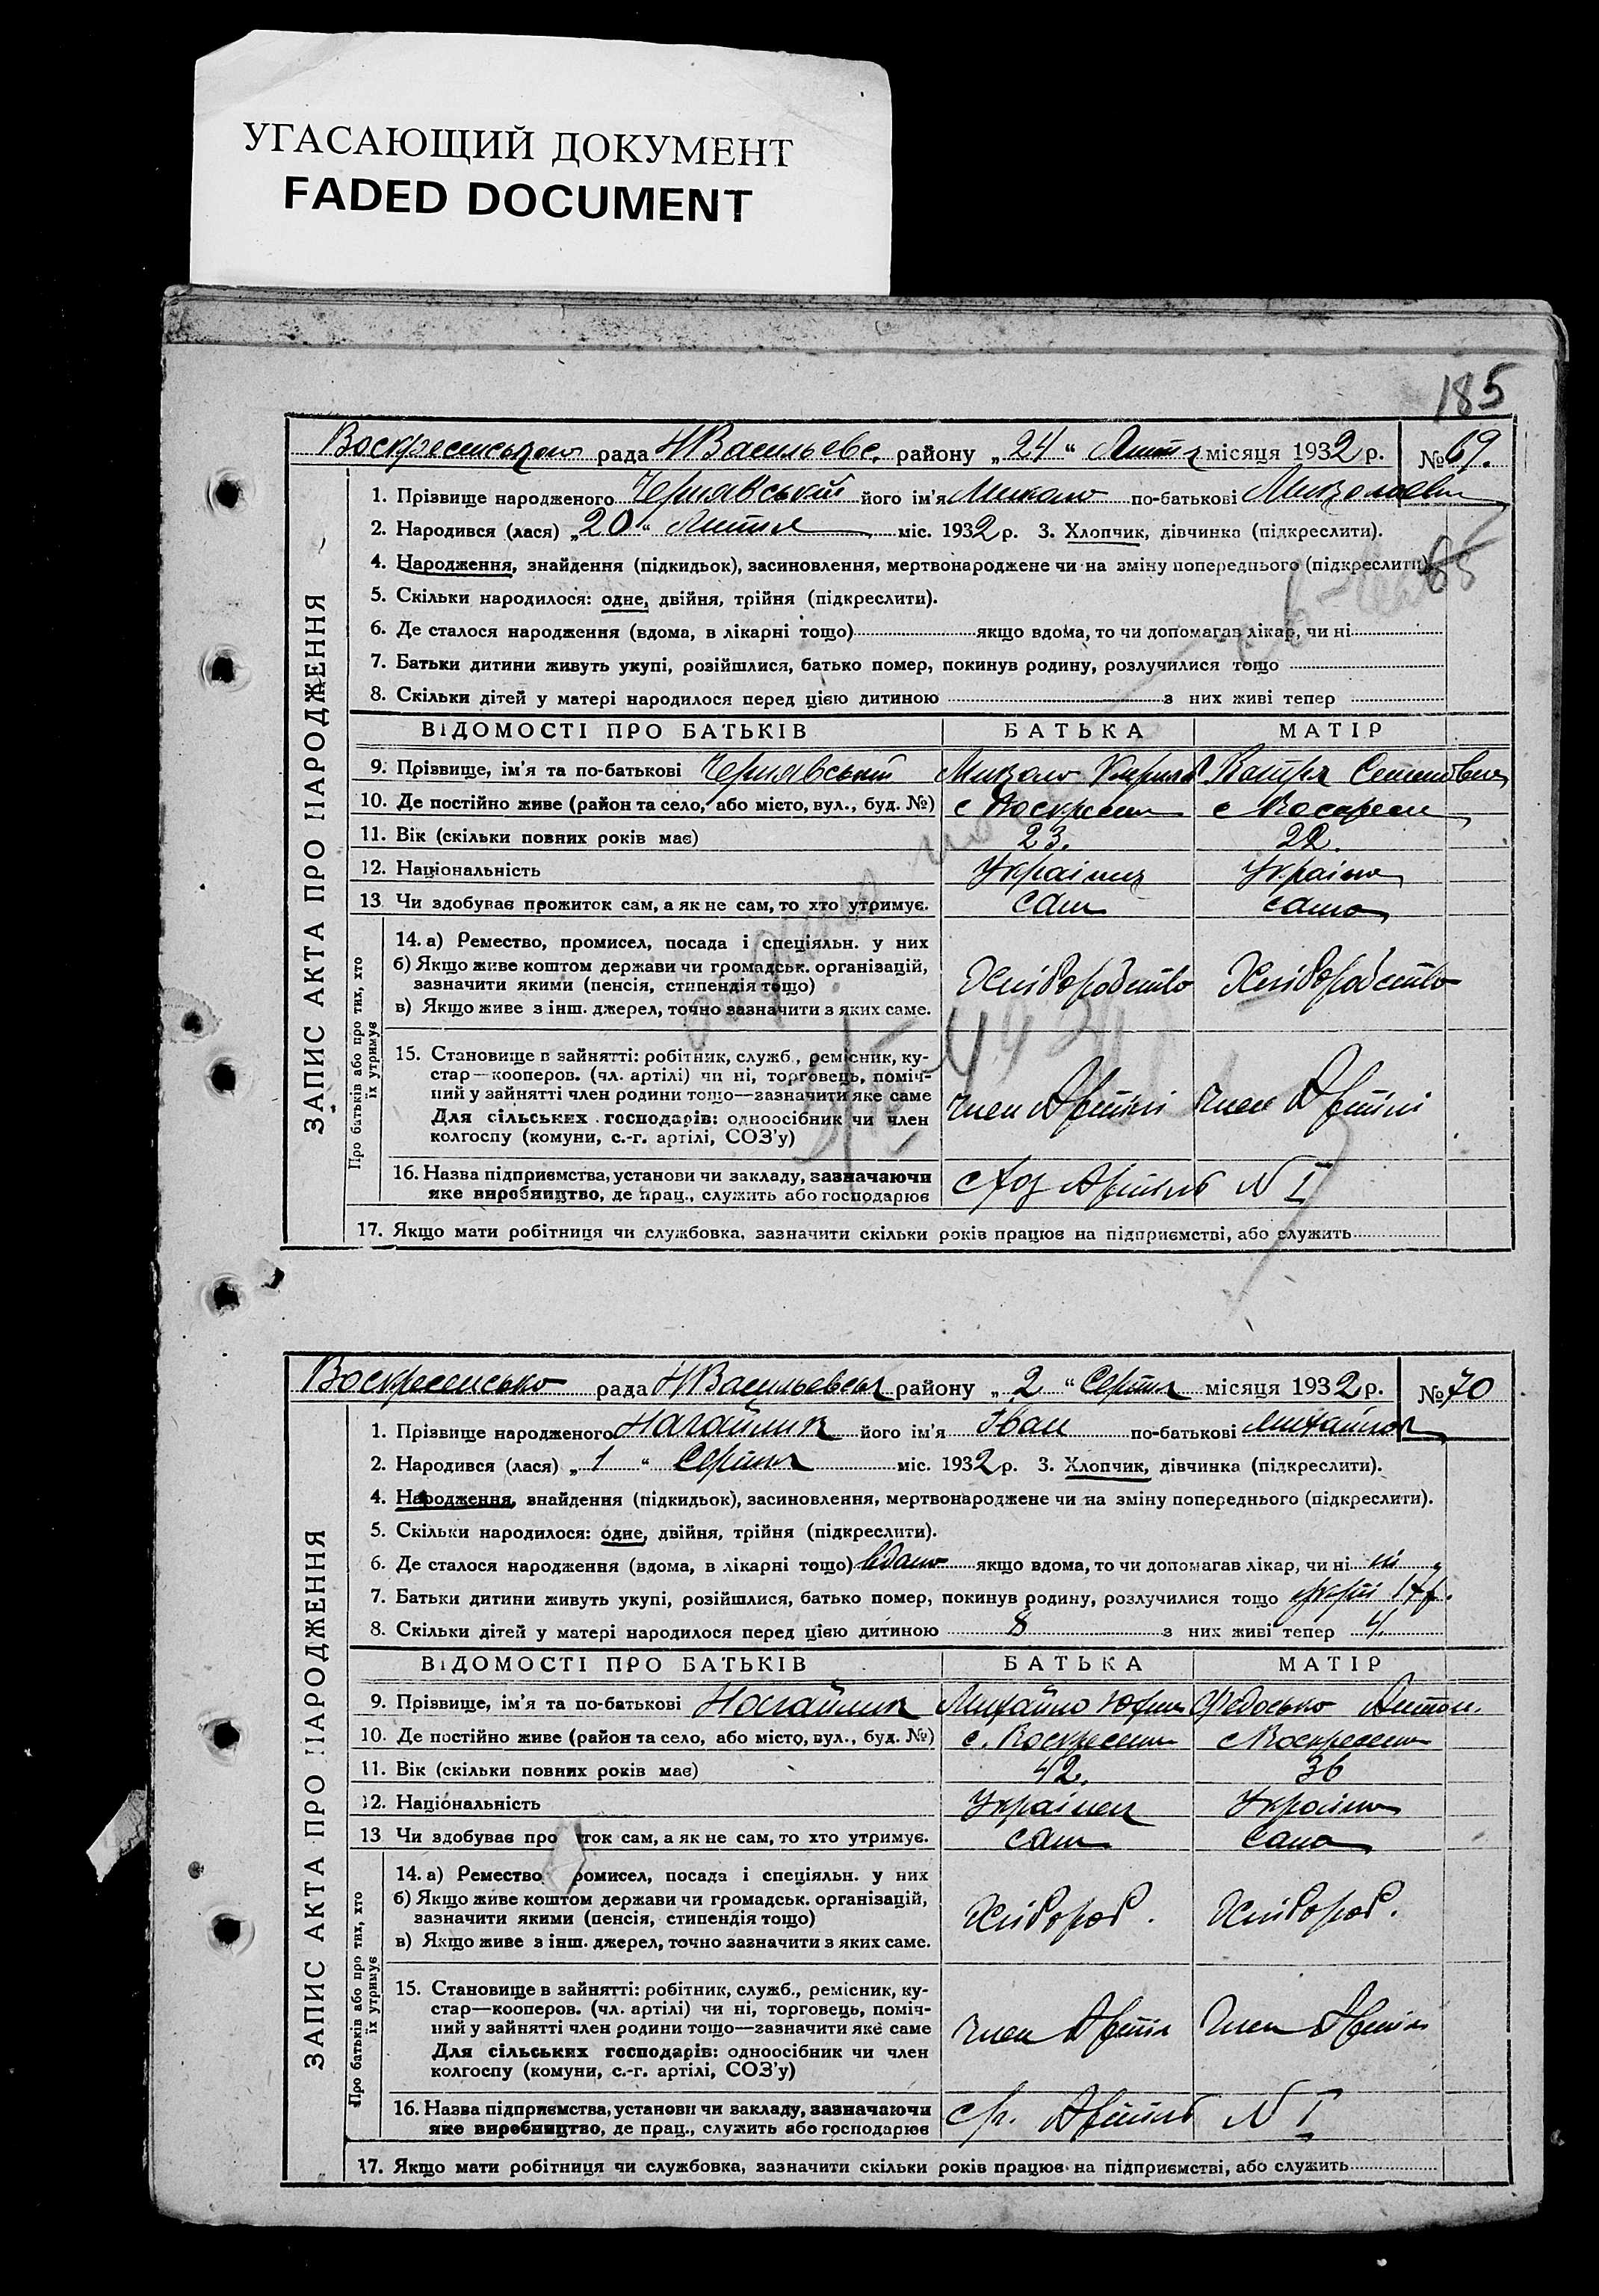 УГАСАЮЩИЙ ДОКУМЕНТ
FADED DOCUMENT
185
рада НВасильевс. району „24“ місяця 1932 р. № 69.
ЗАПИС АКТА ПРО НАРОДЖЕННЯ
1. Прізвище народженого Чернявський його ім'я Микола по-батькові
2. Народився (лася) „20“ міс. 1932 р. 3. Хлопчик, дівчинка (підкреслити).
4. Народження, знайдення (підкидьок), засиновлення, мертвонароджене чи на зміну попереднього (підкреслити).
65
5. Скільки народилося: одне, двійня, трійня (підкреслити).
6. Де сталося народження (вдома, в лікарні тощо) якщо вдома, то чи допомагав лікар, чи ні
7. Батьки дитини живуть укупі, розійшлися, батько помер, покинув родину, розлучилися тощо
8. Скільки дітей у матері народилося перед цією дитиною з них живі тепер
ВІДОМОСТІ ПРО БАТЬКІВ БАТЬКА МАТІР
9. Прізвище, ім'я та по-батькові Чернявський Микола
10. Де постійно живе (район та село, або місто, вул., буд. №) с Воскресен с Воскресен
11. Вік (скільки повних років має) 23. 22.
12. Національність Українец Україн
13 Чи здобуває прожиток сам, а як не сам, то хто утримує. сам сама
Про батьків або про тих, хто їх утримує
14. а) Ремество, промисел, посада і спеціяльн. у них
б) Якщо живе коштом держави чи громадськ. організацій,
зазначити якими (пенсія, стипендія тощо)
в) Якщо живе з інш. джерел, точно зазначити з яких саме.
Хліборобство Хліборобство
15. Становище в зайнятті: робітник, служб., ремісник, ку-
стар—кооперов. (чл. артілі) чи ні, торговець, поміч-
ний у зайнятті член родини тощо—зазначити яке саме
Для сільських господарів: одноосібник чи член
колгоспу (комуни, с.-г. артілі, СОЗ'у)
член Артілі член Артілі
16. Назва підприємства, установи чи закладу, зазначаючи
яке виробництво, де прац., служить або господарює
Артіль N I
17. Якщо мати робітниця чи службовка, зазначити скільки років працює на підприємстві, або служить
рада НВасильевськ району „2“ Серпня місяця 1932 р. № 70
ЗАПИС АКТА ПРО НАРОДЖЕННЯ
1. Прізвище народженого Нагайник його ім'я Іван по-батькові
2. Народився (лася) „1“ Серпня міс. 1932 р. 3. Хлопчик, дівчинка (підкреслити).
4. Народження, знайдення (підкидьок), засиновлення, мертвонароджене чи на зміну попереднього (підкреслити).
5. Скільки народилося: одне, двійня, трійня (підкреслити).
6. Де сталося народження (вдома, в лікарні тощо) вдома якщо вдома, то чи допомагав лікар, чи ні ні
7. Батьки дитини живуть укупі, розійшлися, батько помер, покинув родину, розлучилися тощо
8. Скільки дітей у матері народилося перед цією дитиною 8 з них живі тепер 4.
ВІДОМОСТІ ПРО БАТЬКІВ БАТЬКА МАТІР
9. Прізвище, ім'я та по-батькові Нагайник Михайло Антон.
10. Де постійно живе (район та село, або місто, вул., буд. №) с. Воскресен с Воскресен
11. Вік (скільки повних років має) 42. 36
12. Національність Українец Україн
13 Чи здобуває про ток сам, а як не сам, то хто утримує. сам сама
Про батьків або про тих, хто їх утримує
14. а) Ремество ромисел, посада і спеціяльн. у них
б) Якщо живе коштом держави чи громадськ. організацій,
зазначити якими (пенсія, стипендія тощо)
в) Якщо живе з інш. джерел, точно зазначити з яких саме.
Хлібороб. Хлібороб.
15. Становище в зайнятті: робітник, служб., ремісник, ку-
стар—кооперов. (чл. артілі) чи ні, торговець, поміч-
ний у зайнятті член родини тощо—зазначити яке саме
Для сільських господарів: одноосібник чи член
колгоспу (комуни, с.-г. артілі, СОЗ'у)
член Артіл член Артіл
16. Назва підприємства, установи чи закладу, зазначаючи
яке виробництво, де прац., служить або господарює
Артіль N I
17. Якщо мати робітниця чи службовка, зазначити скільки років працює на підприємстві, або служить